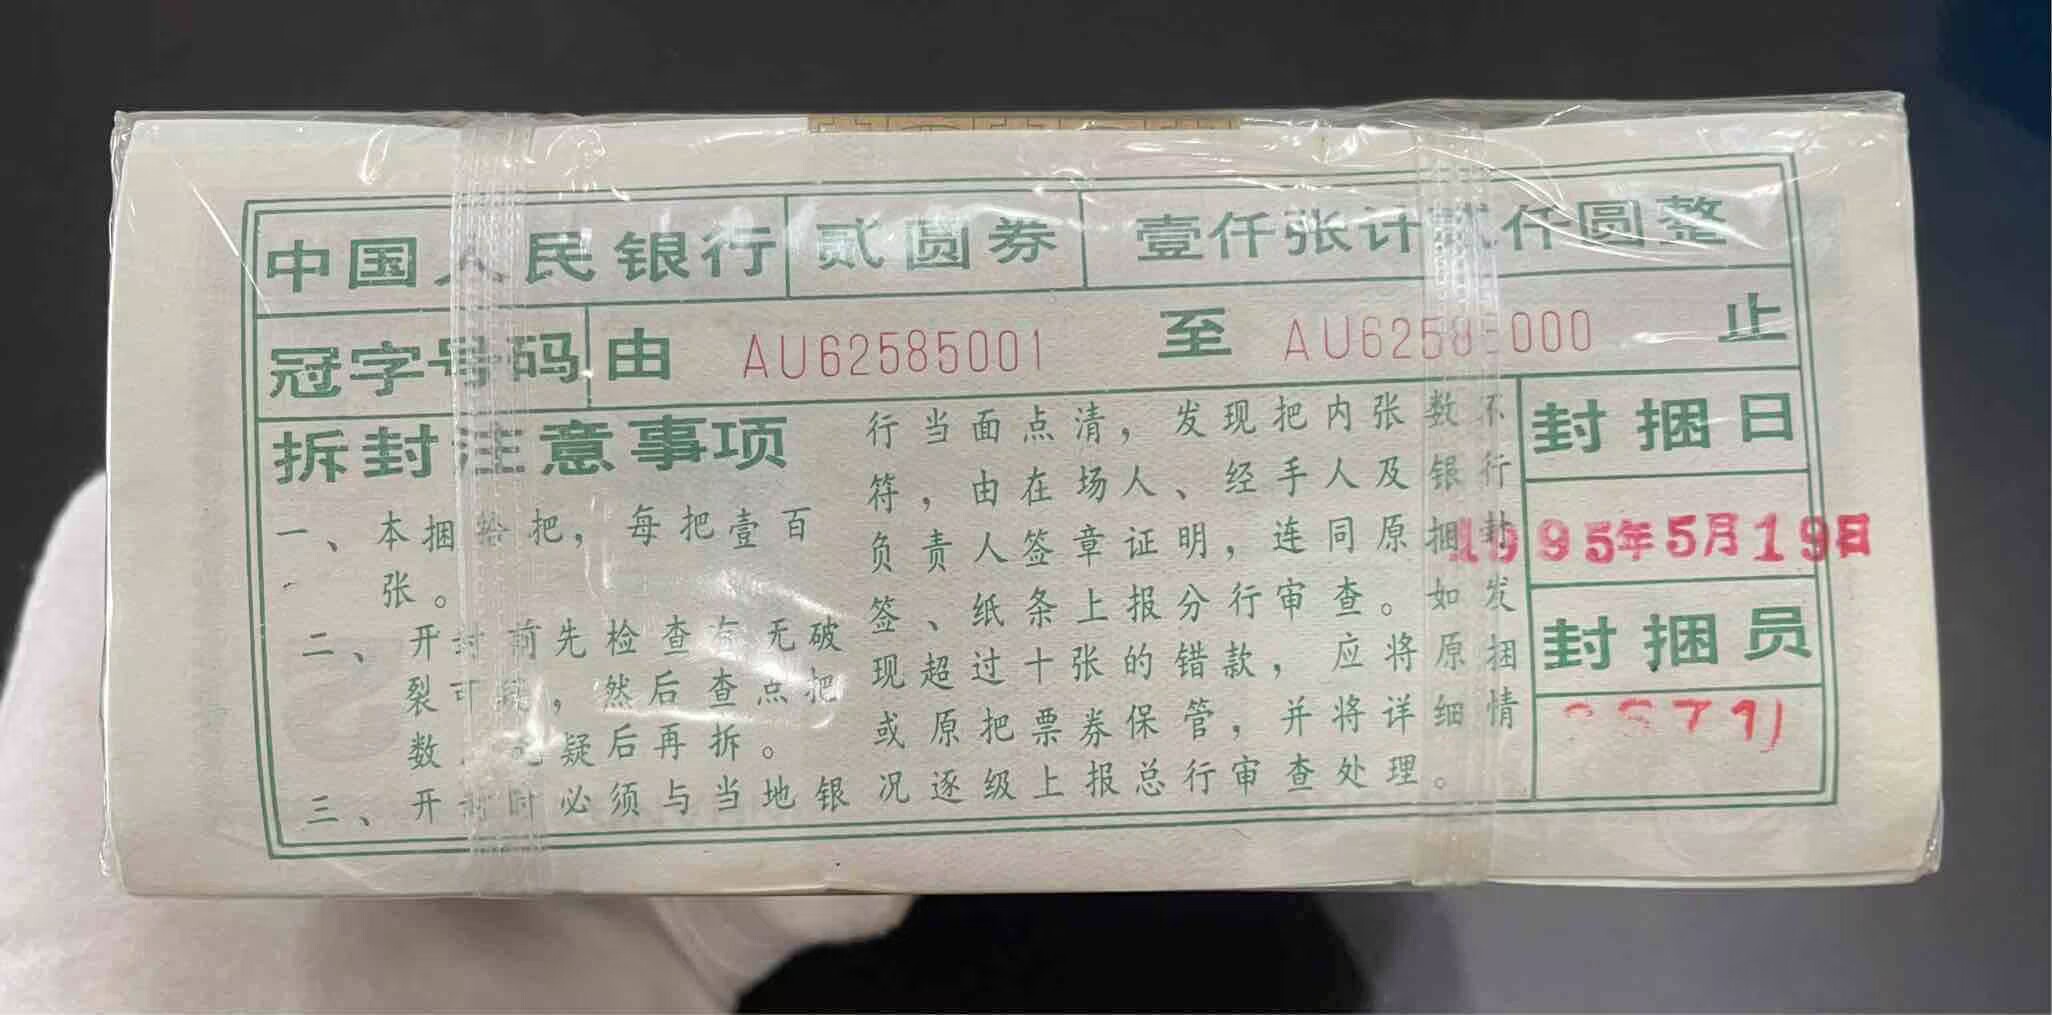 中国人民银行 贰圆券 壹仟张计贰仟圆整
冠字号码 由 AU62585001 至 止
拆封注意事项
一、本捆拾把，每把壹百
张。
二、开封前先检查有无破
裂可疑，然后查点把
数，无疑后再拆。
三、开封时必须与当地银
行当面点清，发现把内张数不
符，由在场人、经手人及银行
负责人签章证明，连同原捆封
签、纸条上报分行审查。如发
现超过十张的错款，应将原捆
或原把票券保管，并将详细情
况逐级上报总行审查处理。
封捆日
1995年5月19日
封捆员